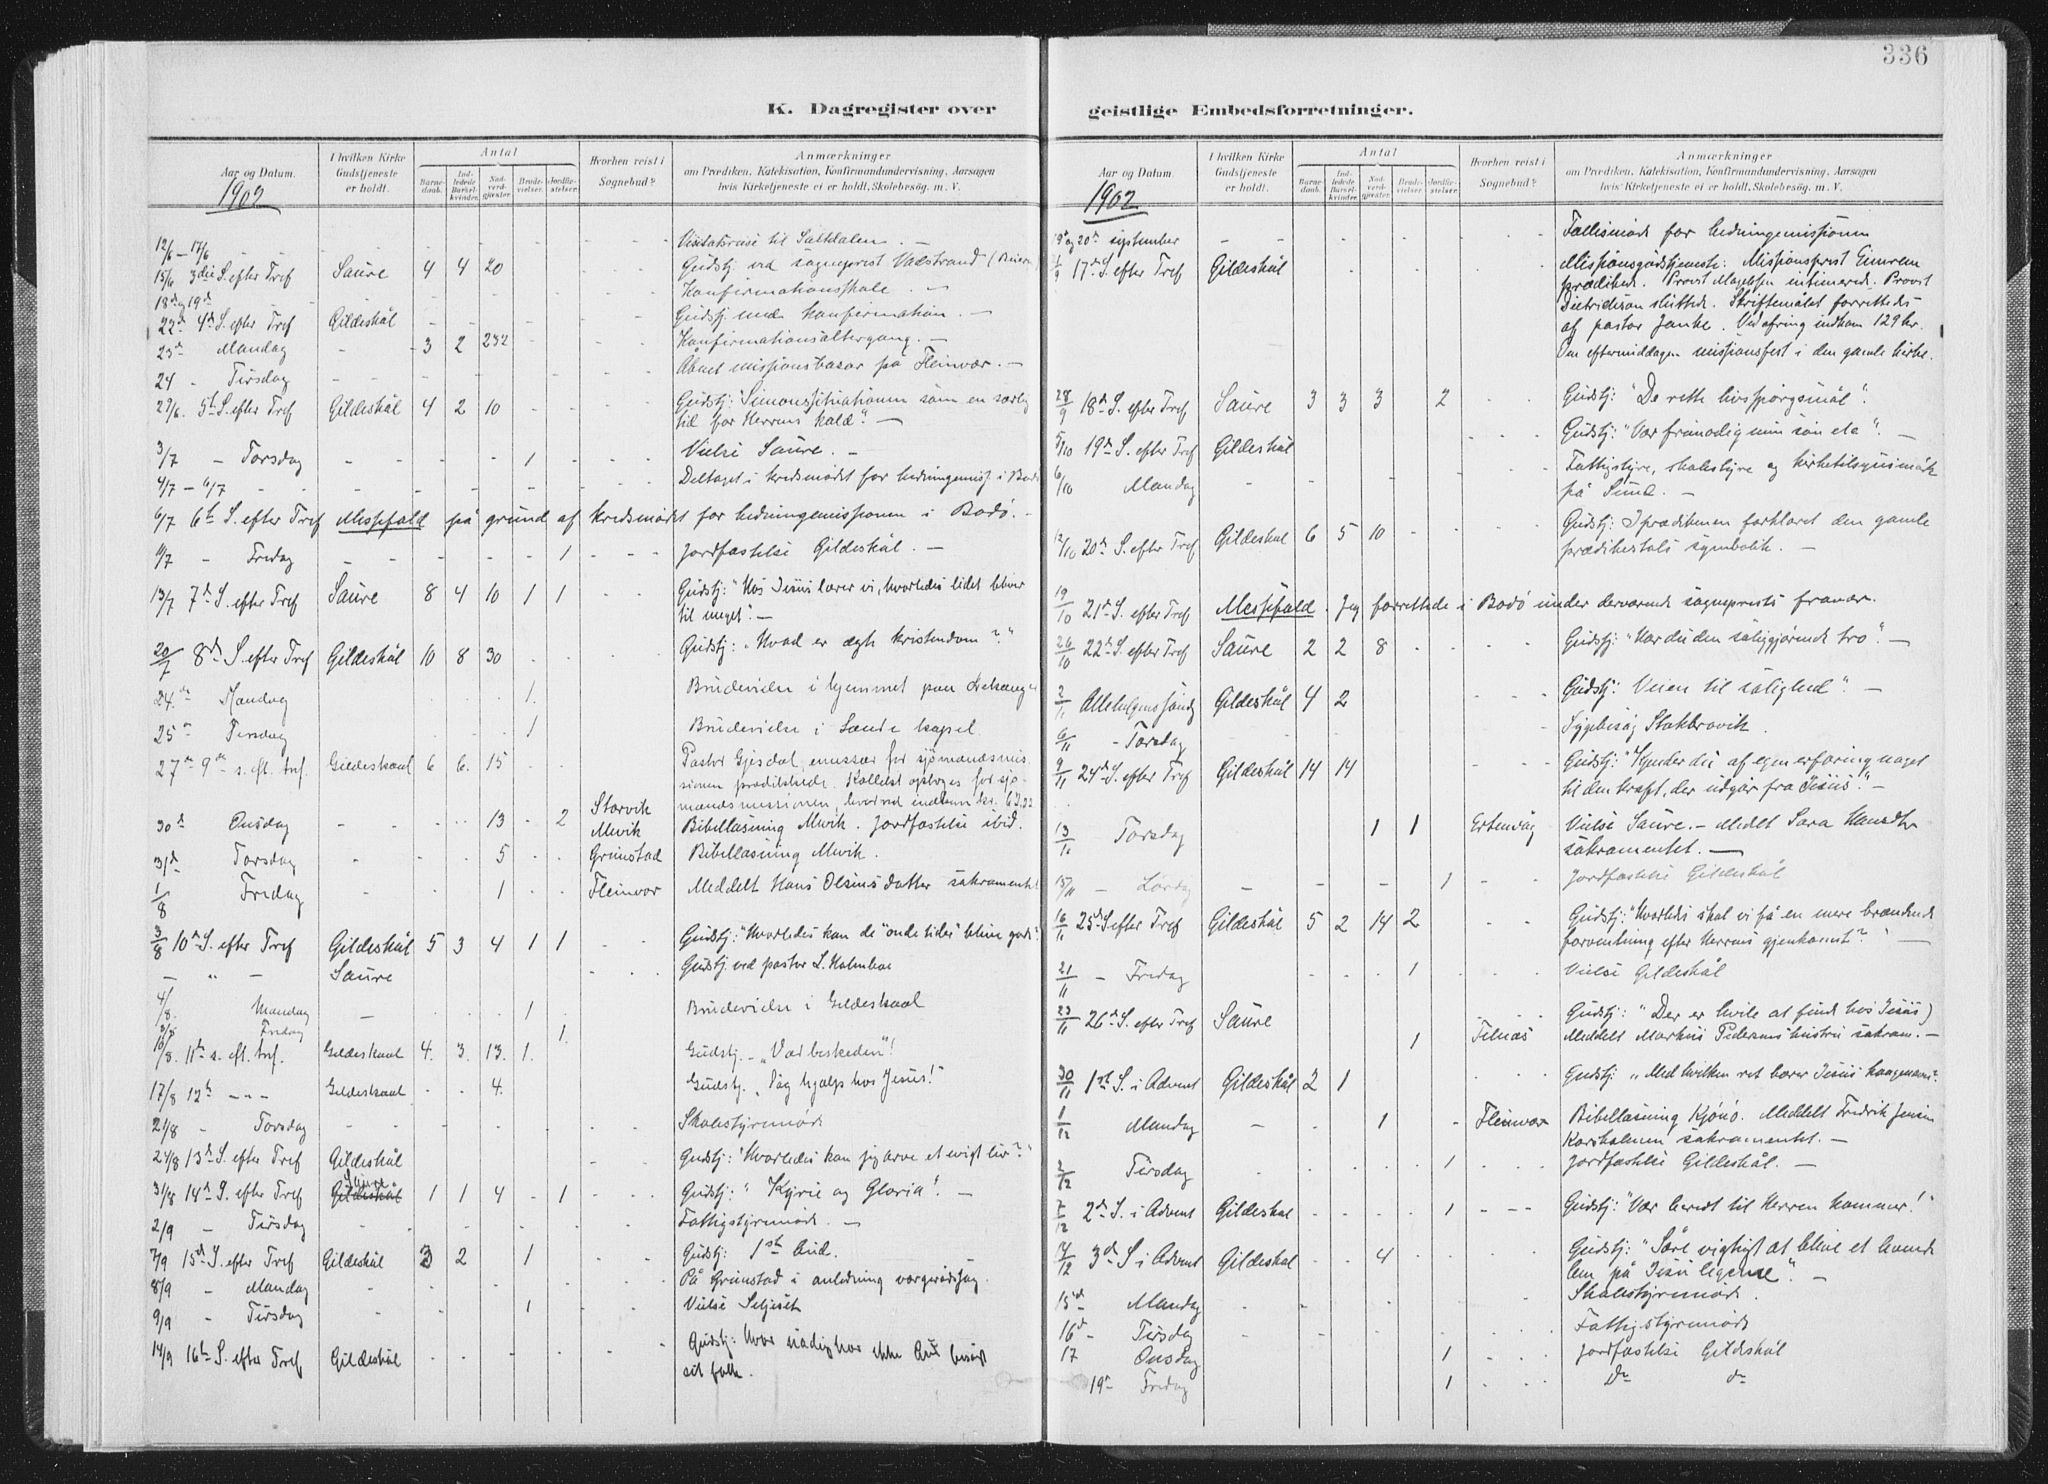 336
K. Dagregister over
Aar og Datum.
1902
I hvilken Kirke Gudstjeneste er holdt.
Antal
Barnedaab.
Indledede Barselkvinder.
Nadverdgjester.
Brudevielser.
Jordfæstelser.
Hvorhen reist i Sognebud?
Anmærkninger
om Prædiken, Katekisation, Konfirmandundervisning, Aarsagen
hvis Kirketjeneste ei er holdt, Skolebesøg. m. V.
12/6 – 17/6 Visitatsreise til Saltdalen. –
15/6 3die S. efter Tref Saure 4 4 20 Gudstj. ved sogneprest Valstrand
18de og 19de Konfirmationsskole. –
22de 4de S. efter Tref Gildeskål Gudstj. med konfirmation. –
23de Mandag 3 2 232 Konfirmationsaltergang. –
24 – Tirsdag Åbnet missionsbasar på Fleinvær. –
29/6. 5te S. efter Tref Gildeskål 4 2 10 Gudstj: "Simonssituationen som en særlig
tid for Herrens kald". –
3/7 – Torsdag 1 Vielse Saure. –
4/7 – 6/7 Deltaget i kredsmødet for hedningemiss. i Bodø
6/7 6te S. efter Tref Messefald på grund af kredsmødet for hedningemissionen i Bodø. –
11/7 – Fredag 1 Jordfæstelse Gildeskål. –
13/7 7de S. efter Tref Saure 8 4 10 1 1 Gudstj: "Hos Jesus lærer vi, hvorledes lidet bliver
til meget". –
20/7 8de S. efter Tref Gildeskål 10 8 30 Gudstj: "Hvad er ægte kristendom?"
24de Mandag 1. Brudevielse i hjemmet paa
25de Tirsdag 1 Brudevielse i Lænde kapel
27de 9de s. eft. tref. Gildeskaal 6 6. 15 Pastor Gjesdal, emissær for sjømandsmis
sionen prædikede. Kollekt optoges for sjø-
mandsmissionen, hvorved indkom kr.
30te Onsdag 13 2 Storvik
Mevik Bibellæsning Mevik. Jordfæstelse ibid.
31te Torsdag 5 Grimstad Bibellæsning Mevik.
1/8 Fredag 1 Fleinvær Meddelt Hans Olsens datter sakramentet
3/8 10de S. efter Tref Gildeskål 5 3 4 1 1 Gudstj: "Hvorledes kan de "onde tider" blive gode".
– " – Saure Gudstj. ved pastor L. Holmboe
4/8. Mandag – 1 Brudevielse i Gildeskaal
Fredag 1.
10/8. 11te s. eft. tref. Gildeskaal 4. 3. 13. 1. Gudstj. – "Vær beskeden"!
17/8 12te – – – Gildeskaal 4. Gudstj. "Søg hjælp hos Jesus!"
21/8 – Torsdag Skolestyremøde
24/8 13de S. efter Tref Gildeskål Gudstj: "Hvorledes kan jeg arve et evigt liv?"
31/8 14de S. efter Tref Saure Gildeskål 1 1 4 – 1 Gudstj: "Kyrie og Gloria". –
2/9 – Tirsdag Fattigstyremøde. –
7/9 15de S. efter Tref Gildeskål 3 2 1 Gudstj: 1ste Bud.
8/9 – Mandag På Grimstad i anledning værgerådssag.
9/9 – Tirsdag 1 Vielse Seljeset
14/9 16te S. efter Tref Gildeskål Gudstj: hvor nådig har ikke Gud besøgt
sit folk.
geistlige Embedsforretninger.
Aar og Datum.
1902
I hvilken Kirke Gudstjeneste er holdt.
Antal
Barnedaab.
Indledede Barselkvinder.
Nadverdgjester.
Brudevielser.
Jordfæstelser.
Hvorhen reist i Sognebud?
Anmærkninger
om Prædiken, Katekisation, Konfirmandundervisning, Aarsagen
hvis Kirketjeneste ei er holdt, Skolebesøg. m. V.
19de og 20de september Fællesmøde for hedningemissionen
17de S. efter Tref Gildeskål Missionsgudstjeneste: Missionsprest Einrem
prædikede. Provst Magelssen intimerede. Provst
Dietrichson sluttede. Skriftemålet forrettedes
af pastor Janke. Ved ofring indkom 129 kr.
Om eftermiddagen missionsfest i den gamle kirke.
28/9 18de S. efter Tref Saure 3 3 3 2 Gudstj: "De rette livsspørgsmål".
5/10 19de S. efter Tref Gildeskål Gudstj: "Vær frimodig min søn etc". –
6/10 Mandag Fattigstyre, skolestyre og kirketilsynsmøde
på Sund. –
12/10 20de S. efter Tref Gildeskål 6 5 10 Gudstj: I prædikenen forklaret den gamle
prædikestols symbolik. –
19/10 21de S. efter Tref Messefald. Jeg forrettede i Bodø under derværende sogneprests fravær.
26/10 22de S. efter Tref Saure 2 2 8 Gudstj: "Har du den saliggjørende tro". –
2/11 Allehelgens sønd Gildeskål 4 2 Gudstj: "Veien til salighed". –
6/11 – Torsdag Sygebesøg Stokkvik
9/11 24de S. efter Tref Gildeskål 14 14 Gudstj: "Kjender du af egen erfaring noget
til den kraft, der udgår fra Jesus". –
13/11 Torsdag 1 1 Ertenvåg Vielse Saure. – Meddelt Sara Hansdtr
sakramentet. –
15/11 – Lørdag 1 Jordfæstelse Gildeskål
16/11 25de S. efter Tref Gildeskål 5 2 14 2 Gudstj: "Hvorledes skal vi få en mere brændende
forventning efter Herrens gjenkomst?" –
21/11 – Fredag 1 Vielse Gildeskål
23/11 26de S. efter Tref Saure Gudstj: "Der er hvile at finde hos Jesus)
1 Felnæs Meddelt Markus Pedersens hustru sakram. –
30/11 1ste S. i Advent Gildeskål 2 1 Gudstj: "Med hvilken ret bærer Jesus kongenavn".
1/12 Mandag 1 Fleinvær Bibellæsning Kjønø. Meddelt Fredrik Jensen
Karsholmen sakramentet. –
2/12 Tirsdag 1 Jordfæstelse Gildeskål. –
7/12 2de S. i Advent Gildeskål 1 Gudstj: "Vær beredt til Herren kommer!"
14/12 3de S. i Advent Gildeskål 4 Gudstj: "Såre vigtigt at blive et levende
lem på Jesu legeme". –
15de Mandag Skolestyremøde.
16de – Tirsdag Fattigstyremøde
17 Onsdag 1 Jordfæstelse Gildeskål
19de – Fredag 1 Do do